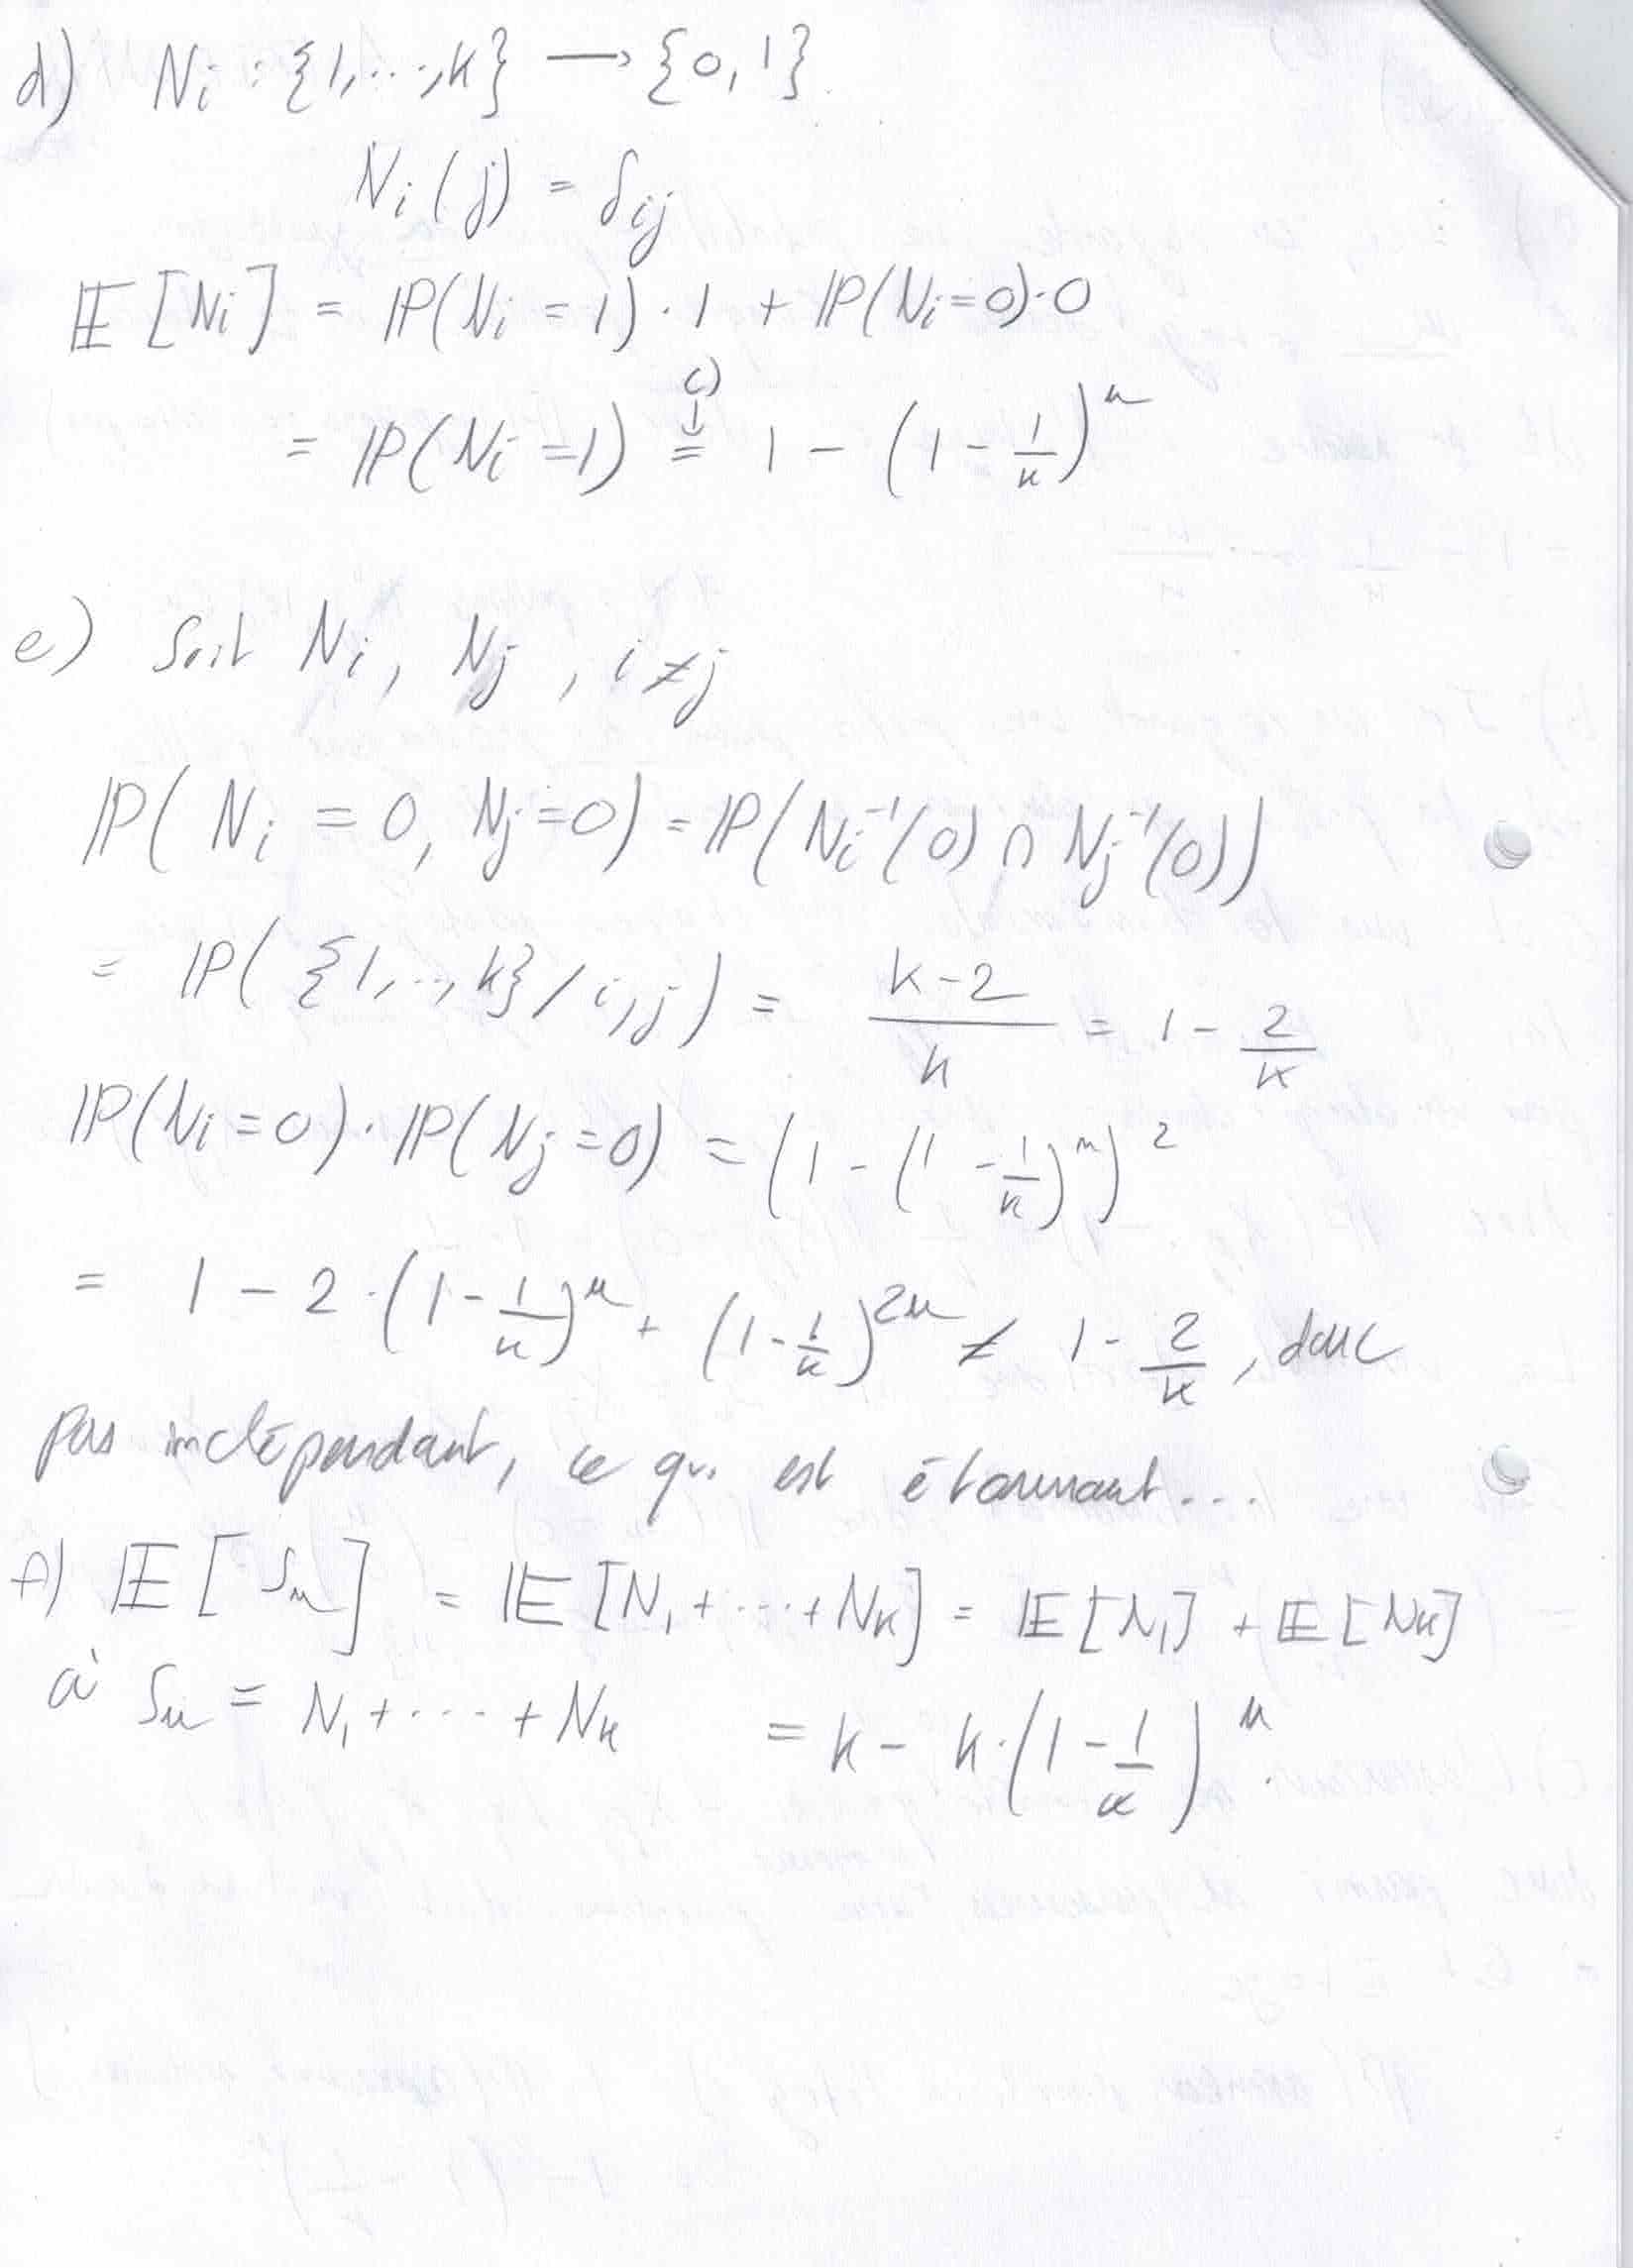 d) Nᵢ : {1,...,k} → {0,1}
Nᵢ(j) = δᵢⱼ
𝔼[Nᵢ] = ℙ(Nᵢ = 1)·1 + ℙ(Nᵢ=0)·0
c) ↓
= ℙ(Nᵢ=1) = 1 - (1 - 1/k)ⁿ
e) Soit Nᵢ, Nⱼ, i≠j
ℙ(Nᵢ = 0, Nⱼ=0) = ℙ(Nᵢ⁻¹(0) ∩ Nⱼ⁻¹(0))
= ℙ({1,..,k}/i,j) = (k-2)/k = 1 - 2/k
ℙ(Nᵢ=0)·ℙ(Nⱼ=0) = (1 - (1 - 1/k)ⁿ)²
= 1 - 2·(1 - 1/k)ⁿ + (1 - 1/k)²ⁿ ≠ 1 - 2/k, donc
pas indépendant, ce qui est étonnant...
f) 𝔼[Sₙ] = 𝔼[N₁+···+Nₖ] = 𝔼[N₁] + 𝔼[Nₖ]
où Sₙ = N₁+···+Nₖ = k - k·(1 - 1/k)ⁿ.